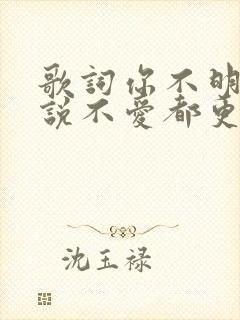 歌詞你不明
說不愛都更
沈玉禄